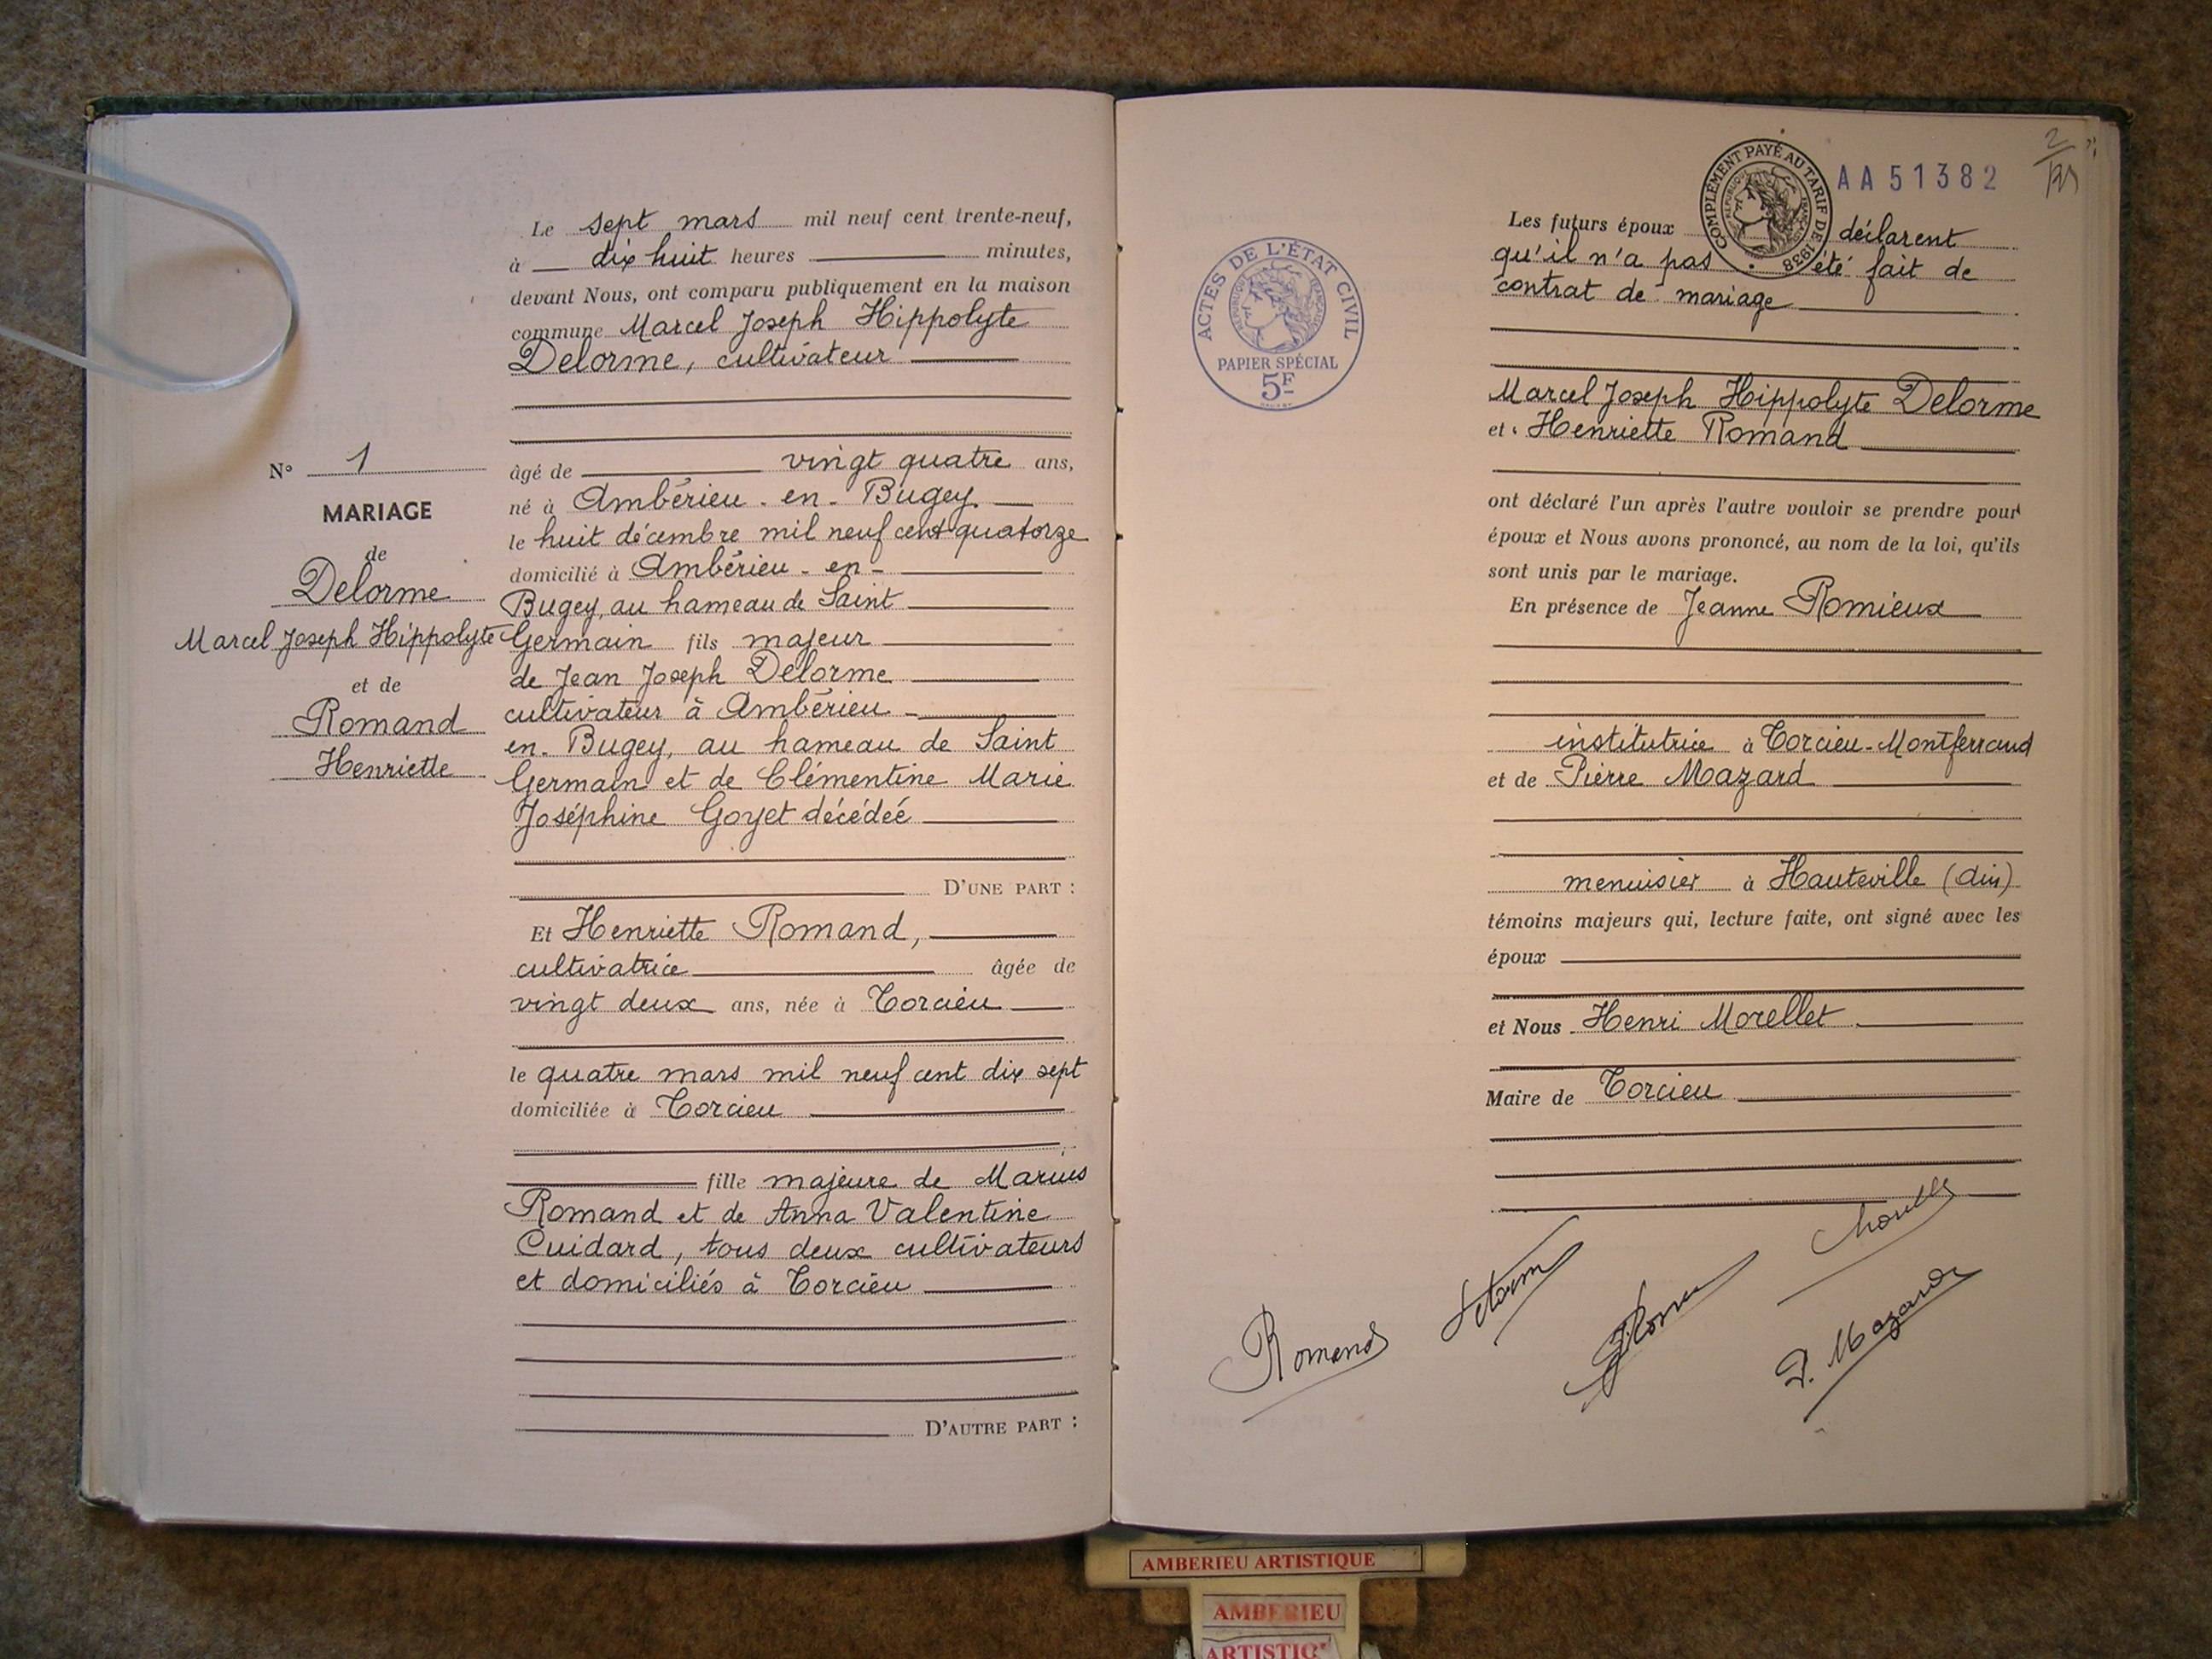 Le sept mars mil neuf cent trente-neuf,
à dix huit heures minutes,
devant Nous, ont comparu publiquement en la maison
commune Marcel Joseph Hippolyte
Delorme, cultivateur
N° 1
MARIAGE
de
Delorme
Marcel Joseph Hippolyte
et de
Romand
Henriette
âgé de vingt quatre ans,
né à Ambérieu-en-Bugey
le huit décembre mil neuf cent quatorze
domicilié à Ambérieu-en-
Bugey, au hameau de Saint
Germain fils majeur
de Jean Joseph Delorme
cultivateur à Ambérieu-
en-Bugey, au hameau de Saint
Germain et de Clémentine Marie
Joséphine Goyet décédée
D'UNE PART :
Et Henriette Romand,
cultivatrice âgée de
vingt deux ans, née à Torcieu
le quatre mars mil neuf cent dix sept
domiciliée à Torcieu
fille majeure de Marius
Romand et de Anna Valentine
Cuidard, tous deux cultivateurs
et domiciliés à Torcieu
D'AUTRE PART :
ACTES DE L'ÉTAT CIVIL
RÉPUBLIQUE FRANÇAISE
PAPIER SPÉCIAL
5F
COMPLÉMENT PAYÉ AU TARIF DE 1938
RÉPUBLIQUE FRANÇAISE
AA51382
2
Les futurs époux déclarent
qu'il n'a pas été fait de
contrat de mariage
Marcel Joseph Hippolyte Delorme
et Henriette Romand
ont déclaré l'un après l'autre vouloir se prendre pour
époux et Nous avons prononcé, au nom de la loi, qu'ils
sont unis par le mariage.
En présence de Jeanne Romieux
institutrice à Torcieu-Montferrand
et de Pierre Mazard
menuisier à Hauteville (Ain)
témoins majeurs qui, lecture faite, ont signé avec les
époux
et Nous Henri Morellet
Maire de Torcieu
Romand
P. Mazard
AMBERIEU ARTISTIQUE
AMBERIEU
ARTISTIQ